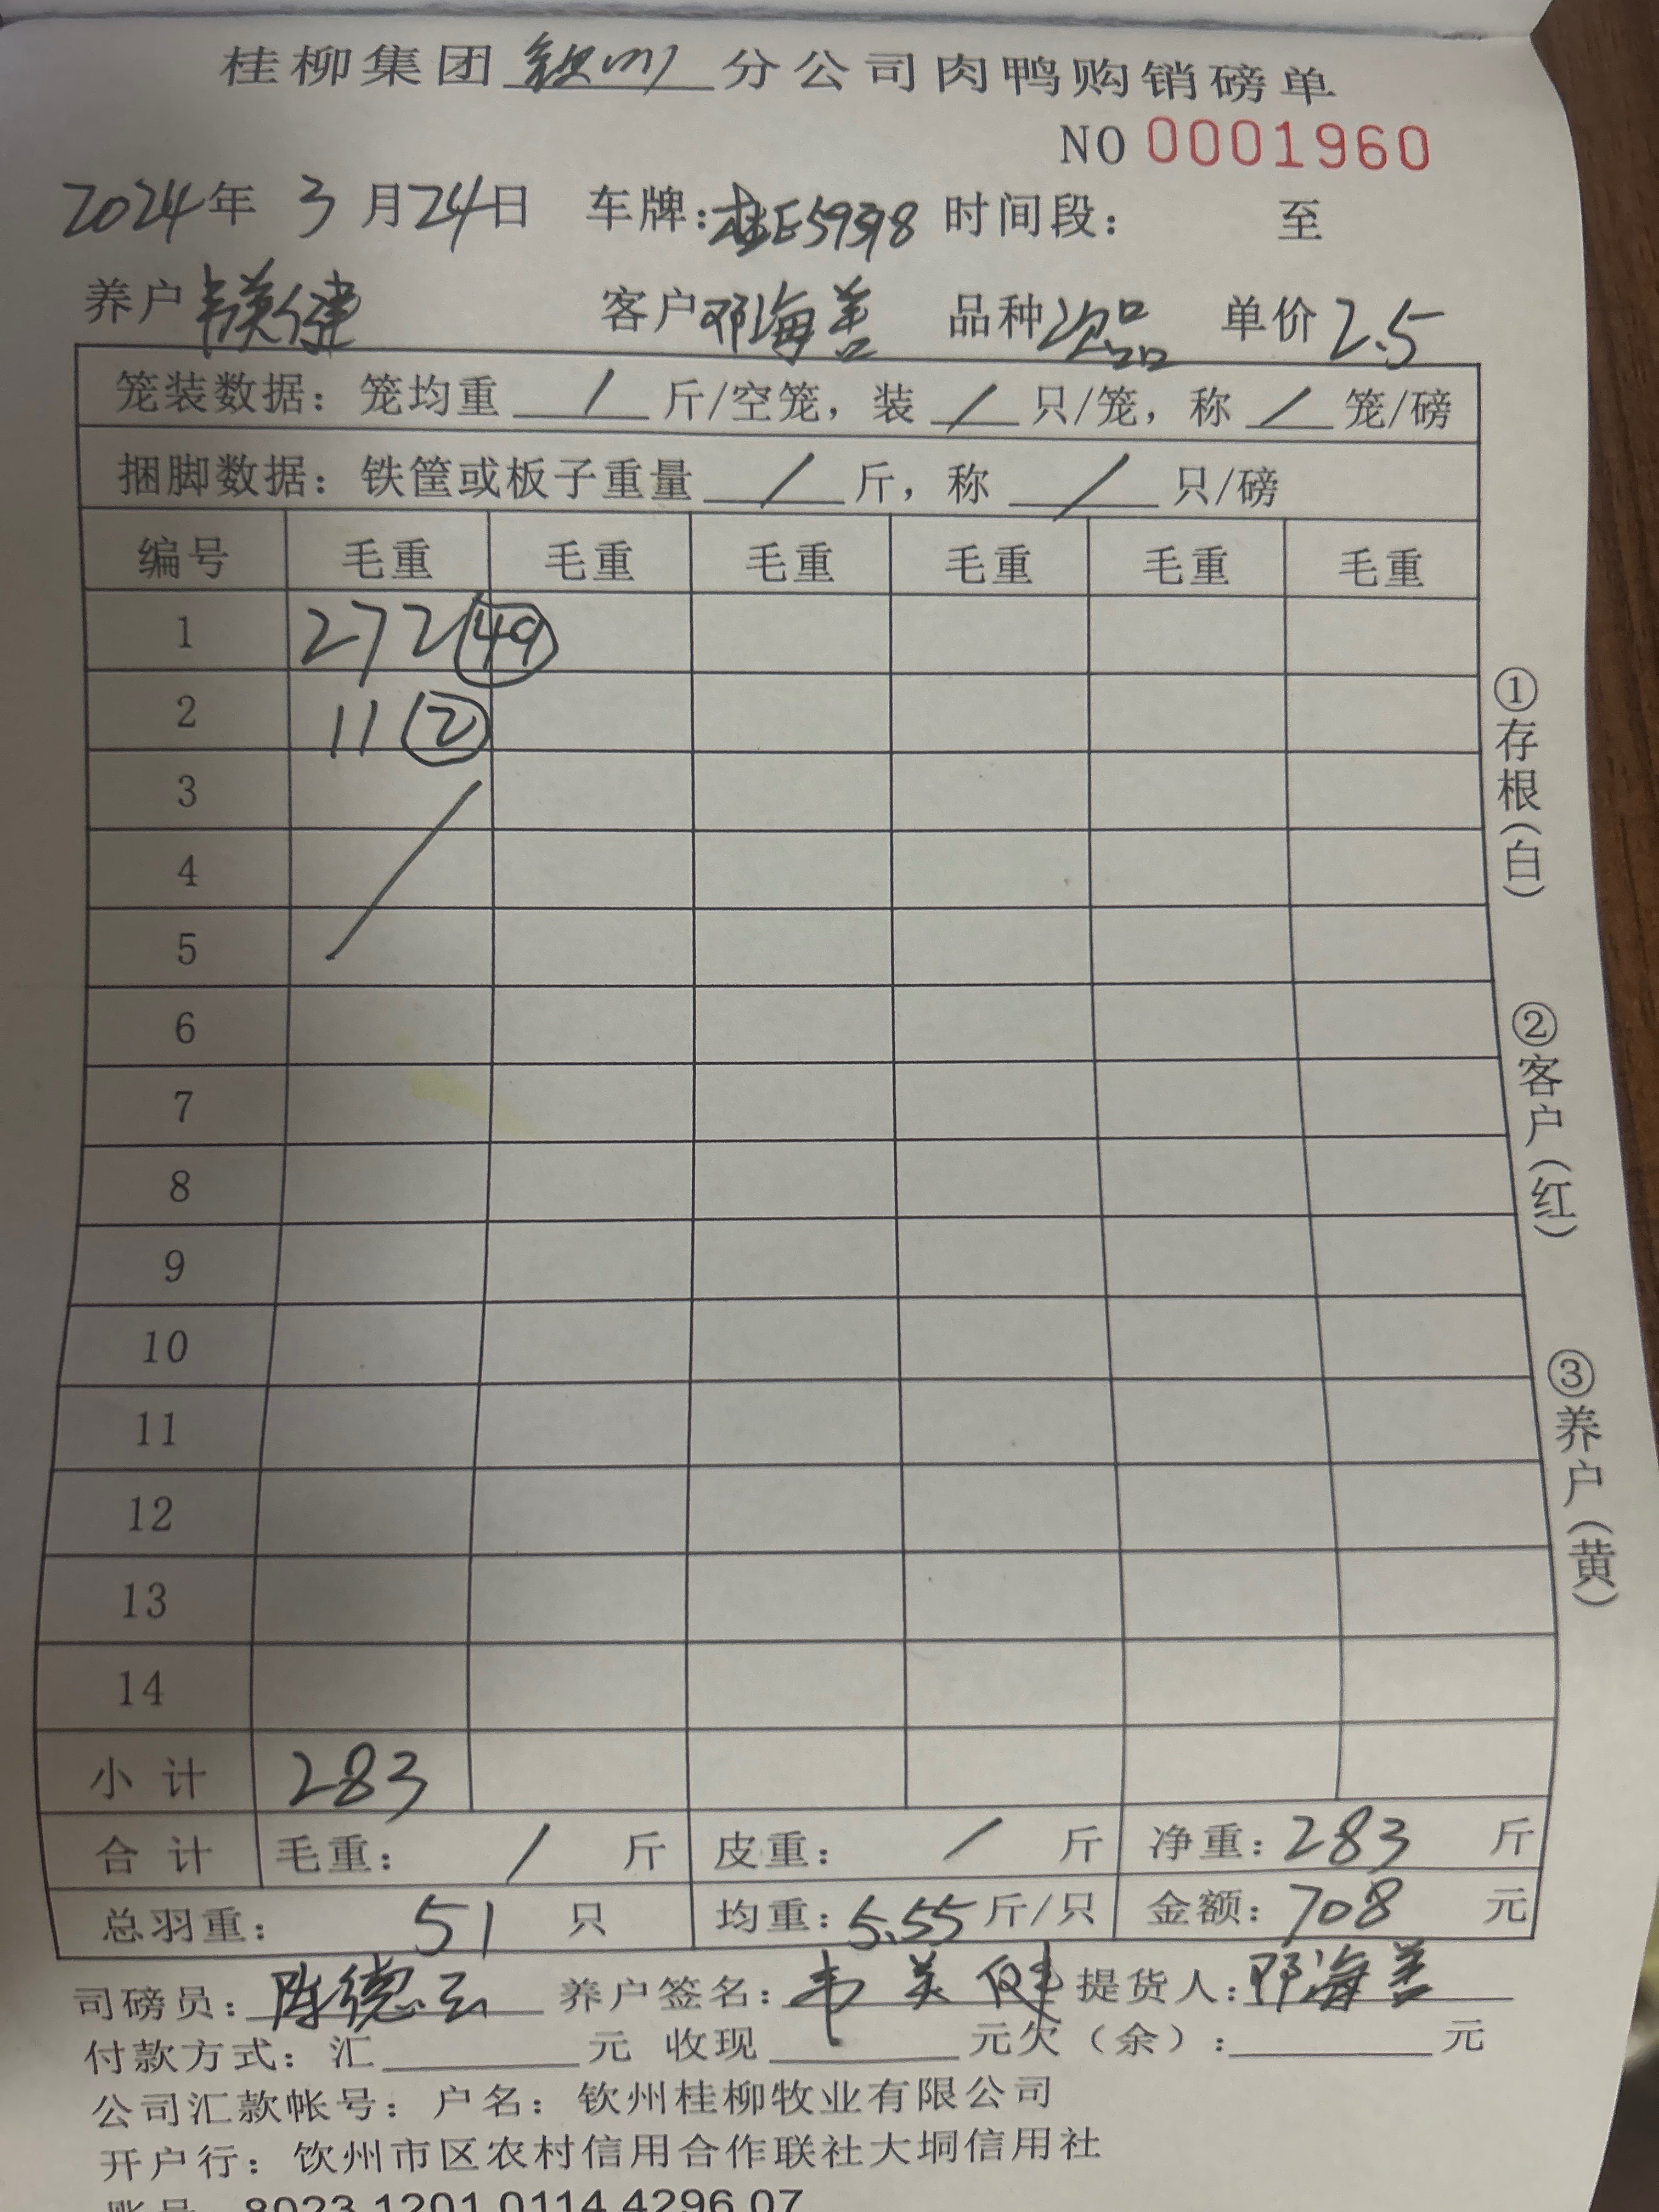 桂柳集团 钦州 分公司肉鸭购销磅单
NO 0001960
2024年 3 月24日 车牌：桂E59398 时间段： 至
养户 韦美健 客户 邓海善 品种 次品 单价 2.5
笼装数据：笼均重 / 斤/空笼，装 / 只/笼，称 / 笼/磅
捆脚数据：铁筐或板子重量 / 斤，称 / 只/磅
编号 毛重 毛重 毛重 毛重 毛重 毛重
1 272 49
2 11 ②
3
4
5
6
7
8
9
10
11
12
13
14
小计 283
合计 毛重： / 斤 皮重： / 斤 净重：283 斤
总羽重： 51 只 均重：5.55斤/只 金额：708 元
司磅员：陈德云 养户签名：韦美健 提货人：邓海善
付款方式：汇 元 收现 元欠（余）： 元
公司汇款帐号：户名：钦州桂柳牧业有限公司
开户行：钦州市区农村信用合作联社大垌信用社
账号 8023 1201 0114 4296 07
①存根（白）
②客户（红）
③养户（黄）